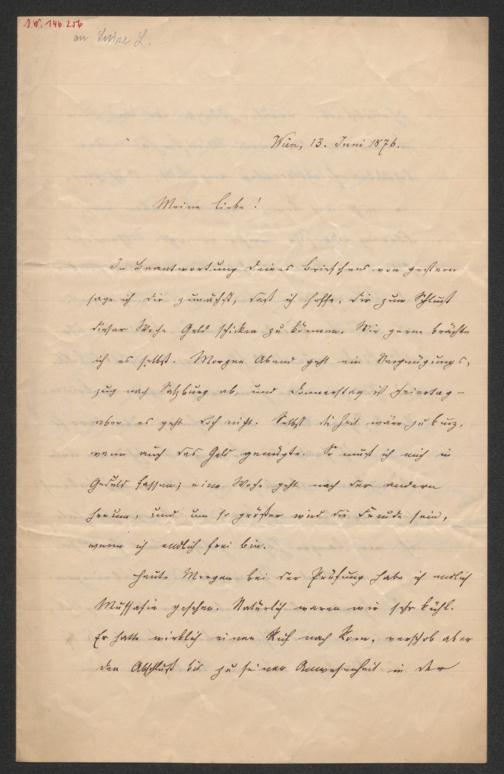 I.N. 146.256
an Luise L.
Wien, 13. Juni 1876.
Meine Liebe!
In Beantwortung Deines Briefchens von gestern
sage ich Dir zunächst, daß ich hoffe, Dir zum Schluß
dieser Woche Geld schicken zu können. Wie gerne brächte
ich es selbst. Morgen Abend geht ein Vergnügungs-
zug nach Salzburg ab, und Donnerstag ist Feiertag –
aber es geht doch nicht. Selbst die Zeit wäre zu kurz,
wenn auch das Geld genügte. So muß ich mich in
Geduld fassen; eine Woche geht nach der andern
herum, und um so größer wird die Freude sein,
wenn ich endlich frei bin.
Heute Morgen bei der Prüfung habe ich endlich
Mussafia gesehen. Natürlich waren wir sehr kühl.
Er hatte wirklich einen Ruf nach Rom, verschob aber
den Abschluß bis zu seiner Anwesenheit in der